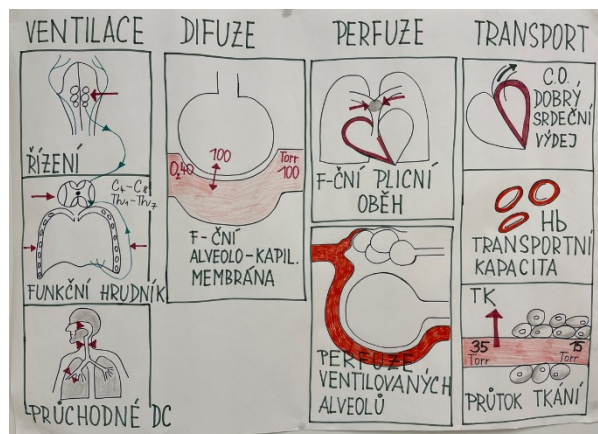 VENTILACE
ŘÍZENÍ
C4-C8
Th1-Th7
FUNKČNÍ HRUDNÍK
PRŮCHODNÉ DC
DIFUZE
O2 40
100
Torr
100
F-ČNÍ
ALVEOLO-KAPIL.
MEMBRÁNA
PERFUZE
F-ČNÍ PLICNÍ
OBĚH
PERFUZE
VENTILOVANÝCH
ALVEOLŮ
TRANSPORT
C.O.
DOBRÝ
SRDEČNÍ
VÝDEJ
Hb
TRANSPORTNÍ
KAPACITA
TK
35
Torr
15
Torr
PRŮTOK TKÁNÍ